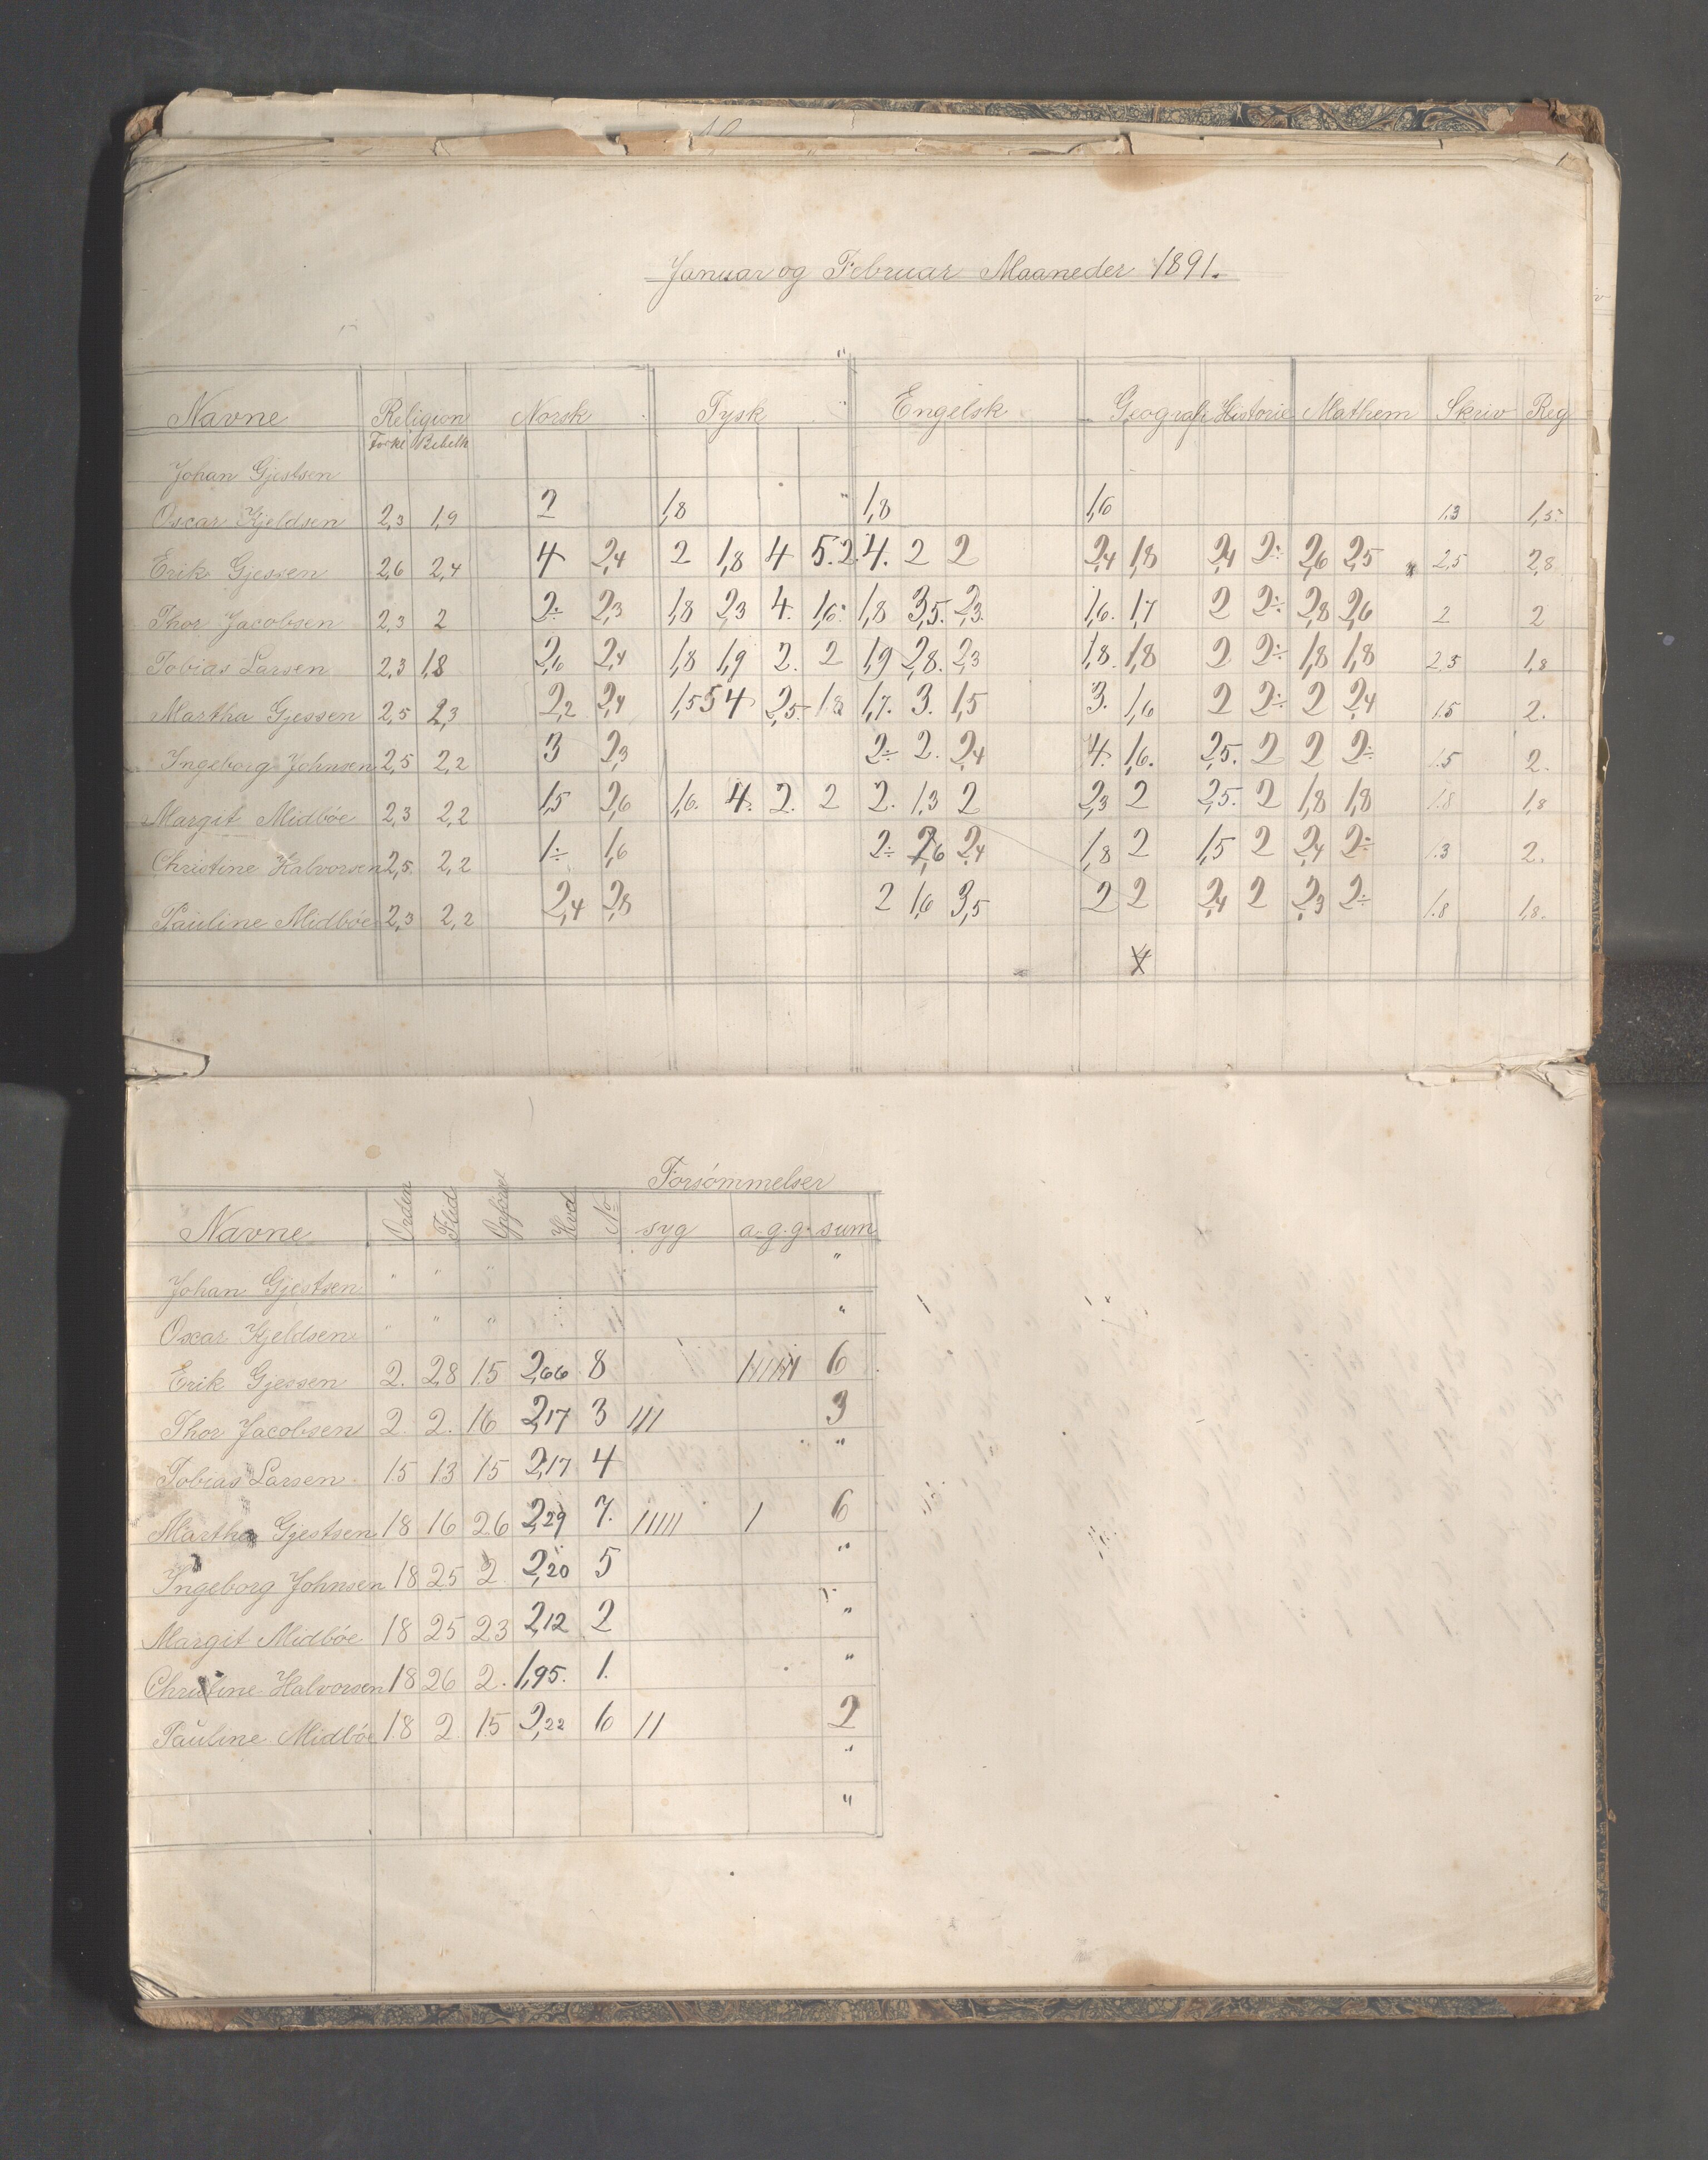 Januar og Februar Maaneder 1891.
Navne Religion Norsk Tysk Engelsk Geografi Historie Mathem Skriv Reg
Forkl Bibelh
Johan Gjestsen
Oscar Kjeldsen 2,3 1,9 2 1,8 1,8 1,6 1,3 1,5÷
Erik Gjessen 2,6 2,4 4 2,4 2 1,8 4 5.2 4. 2 2 2,4 1,8 2,4 2÷ 2,6 2,5 2,5 2,8
Thor Jacobsen 2,3 2 2÷ 2,3 1,8 2,3 4. 1,6÷ 1,8 3,5. 2,3. 1,6. 1,7 2 2÷ 2,8 2,6 2 2
Tobias Larsen 2,3 1,8 2,6 2,4 1,8 1,9 2. 2 1,9 2,8. 2,3 1,8. 1,8 2 2÷ 1,8 1,8 2,5 1,8
Martha Gjessen 2,5 2,3 2,2 2,4 1,5 5 4 2,5. 1,8 1,7. 3. 1,5 3. 1,6 2 2÷ 2 2,4 1.5 2.
Ingeborg Johnsen 2,5 2,2 3 2,3 2÷ 2. 2,4 4. 1,6. 2,5. 2 2 2÷ 1.5 2.
Margit Midbøe 2,3 2,2 1,5 2,6 1,6. 4. 2. 2 2. 1,3 2 2,3 2 2,5. 2 1,8 1,8 1.8 1,8
Christine Halvorsen 2,5. 2,2 1÷ 1,6 2÷ 2,6 2,4 1,8 2 1,5 2 2,4 2÷ 1.3 2.
Pauline Midbøe 2,3 2,2 2,4 2,8 2 1,6 3,5 2 2 2,4 2 2,3 2÷ 1.8 1,8.
Forsømmelser
Navne Orden Flid Opførsel Hvd No syg a.g.g. sum
Johan Gjestsen " " " "
Oscar Kjeldsen " " " "
Erik Gjessen 2. 2,8 1.5 2,66 8 6
Thor Jacobsen 2 2. 16 2,17 3 III 3
Tobias Larsen 1.5 1.3 1.5 2,17 4 "
Martha Gjestsen 18 16 2.6 2,29 7. IIIII I 6
Ingeborg Johnsen 18 25 2 2,20 5 "
Margit Midbøe 18 25 23 2,12 2 "
Christine Halvorsen 18 26 2. 1,95. 1. "
Pauline Midbøe 1.8 2 1.5 2,22 6 II 2
"
"